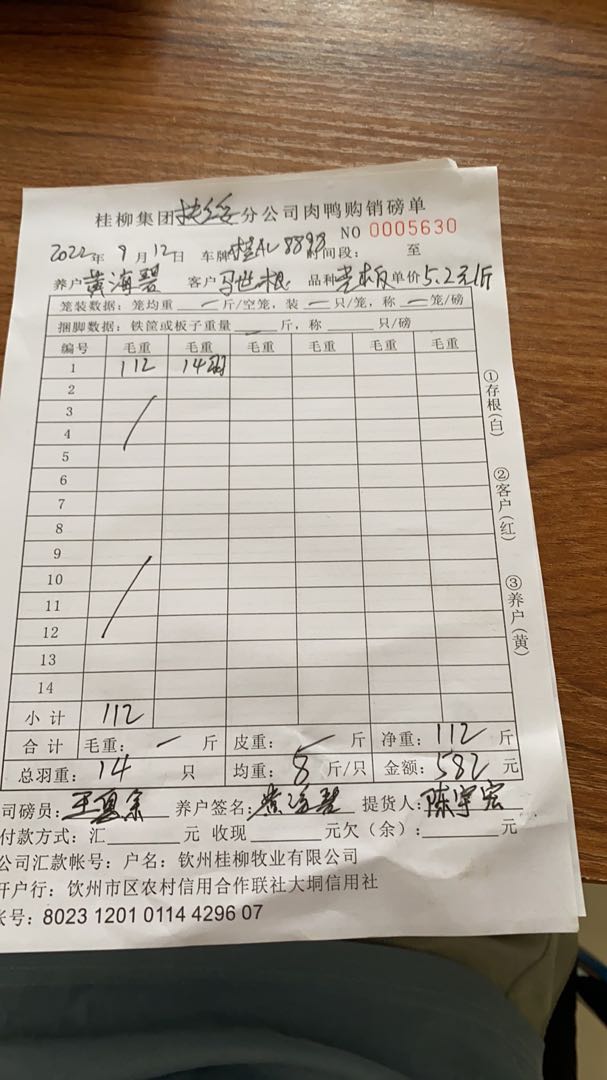 桂柳集团扶绥分公司肉鸭购销磅单
NO 0005630
2022年9月12日 车牌桂AU8898时间段: 至
养户黄海碧 客户马世根 品种 单价5.2元/斤
笼装数据:笼均重 — 斤/空笼,装 — 只/笼,称 — 笼/磅
捆脚数据:铁筐或板子重量 — 斤,称 只/磅
编号 毛重 毛重 毛重 毛重 毛重 毛重
1 112 14羽
2
3
4
5
6
7
8
9
10
11
12
13
14
小计 112
合计 毛重: — 斤 皮重: — 斤 净重:112斤
总羽重:14 只 均重:8斤/只 金额:582元
司磅员: 养户签名:黄海碧 提货人:陈宇宏
付款方式:汇 元 收现 元欠(余): 元
公司汇款帐号:户名:钦州桂柳牧业有限公司
开户行:饮州市区农村信用合作联社大垌信用社
帐号:8023 1201 0114 4296 07
①存根(白) ②客户(红) ③养户(黄)